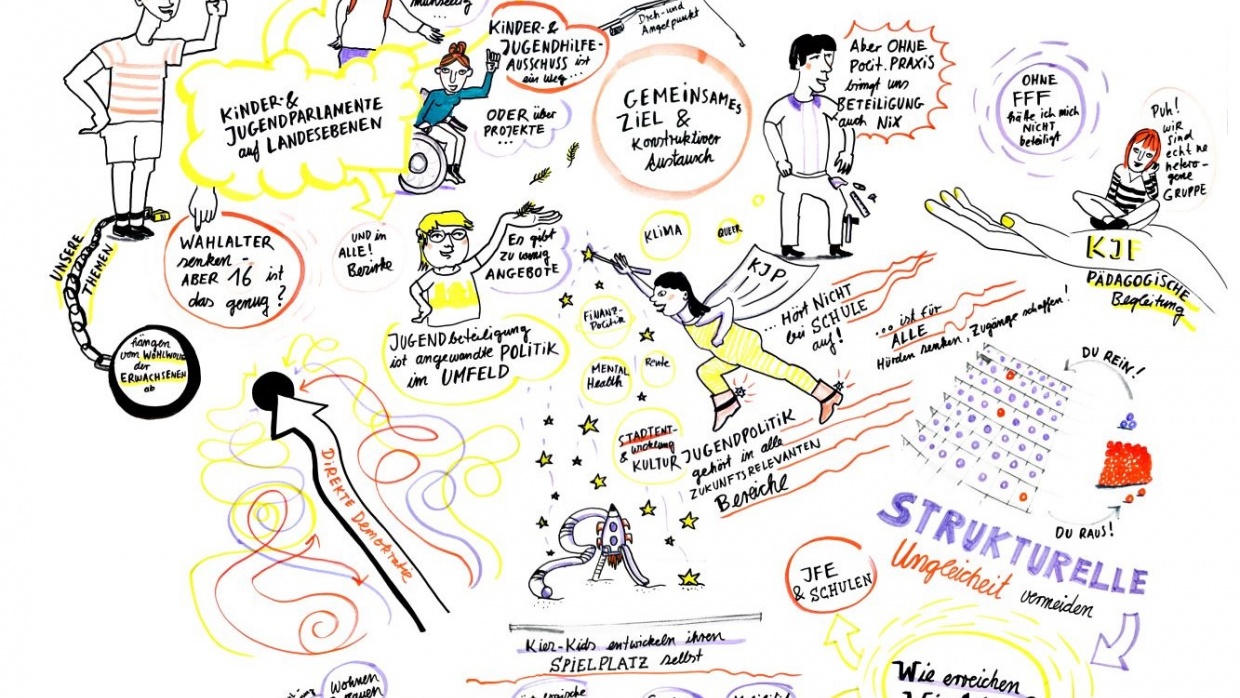 KINDER- &
JUGENDPARLAMENTE
auf LANDESEBENEN
KINDER- &
JUGENDHILFE-
AUSSCHUSS ist
ein Weg...
ODER über
PROJEKTE ...
...
Dreh- und
Angelpunkt
GEMEINSAMES
ZIEL &
Konstruktiver
Austausch
Aber OHNE
Polit. PRAXIS
bringt uns
BETEILIGUNG
auch NiX
OHNE
FFF
hätte ich mich
NICHT
beteiligt
PUH!
wir
sind
echt ne
hetero-
gene
GRUPPE
KJF
PÄDAGOGISCHE
Begleitung
UNSERE
THEMEN
hängen
vom WOHLWOLLEN
der
ERWACHSENEN
ab
WAHLALTER
senken -
ABER 16 ist
das genug?
UND in
ALLE!
Bezirke
Es gibt
zu wenig
ANGEBOTE
JUGENDbeteiligung
ist angewandte POLITIK
im UMFELD
KLIMA
QUEER
KJP
FINANZ-
Politik
MENTAL
Health
Rente
STADTENT-
wicklung
& KULTUR
... Hört NICHT
bei SCHULE
auf!
... ist für
ALLE
Hürden senken, Zugänge schaffen!
JUGENDPOLITIK
gehört in alle
ZUKUNFTSRELEVANTEN
Bereiche
DIREKTE Demokratie
DU REIN!
DU RAUS!
STRUKTURELLE
Ungleicheit vermeiden
JFE
& SCHULEN
Kiez-Kids entwickeln ihren
SPIELPLATZ selbst
Wohnen
Wie erreichen